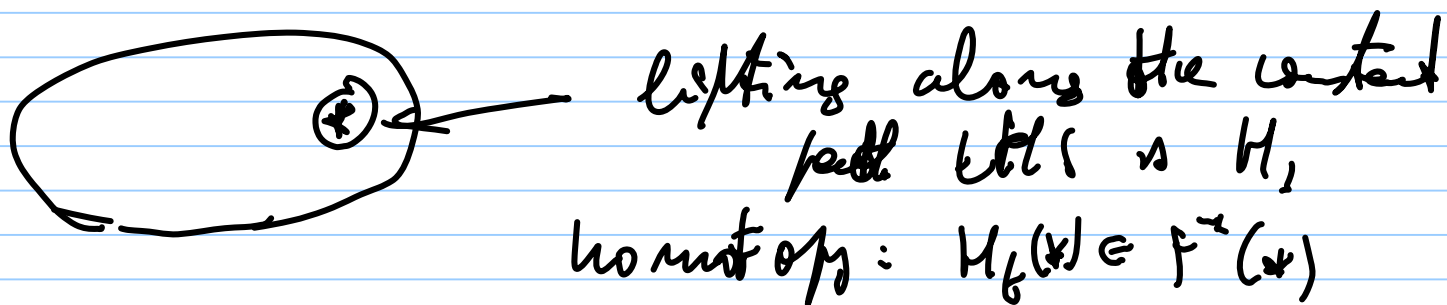 *
lifting along the constant
path this is H,
homotopy: H_t(*) ∈ F^{-1}(*)